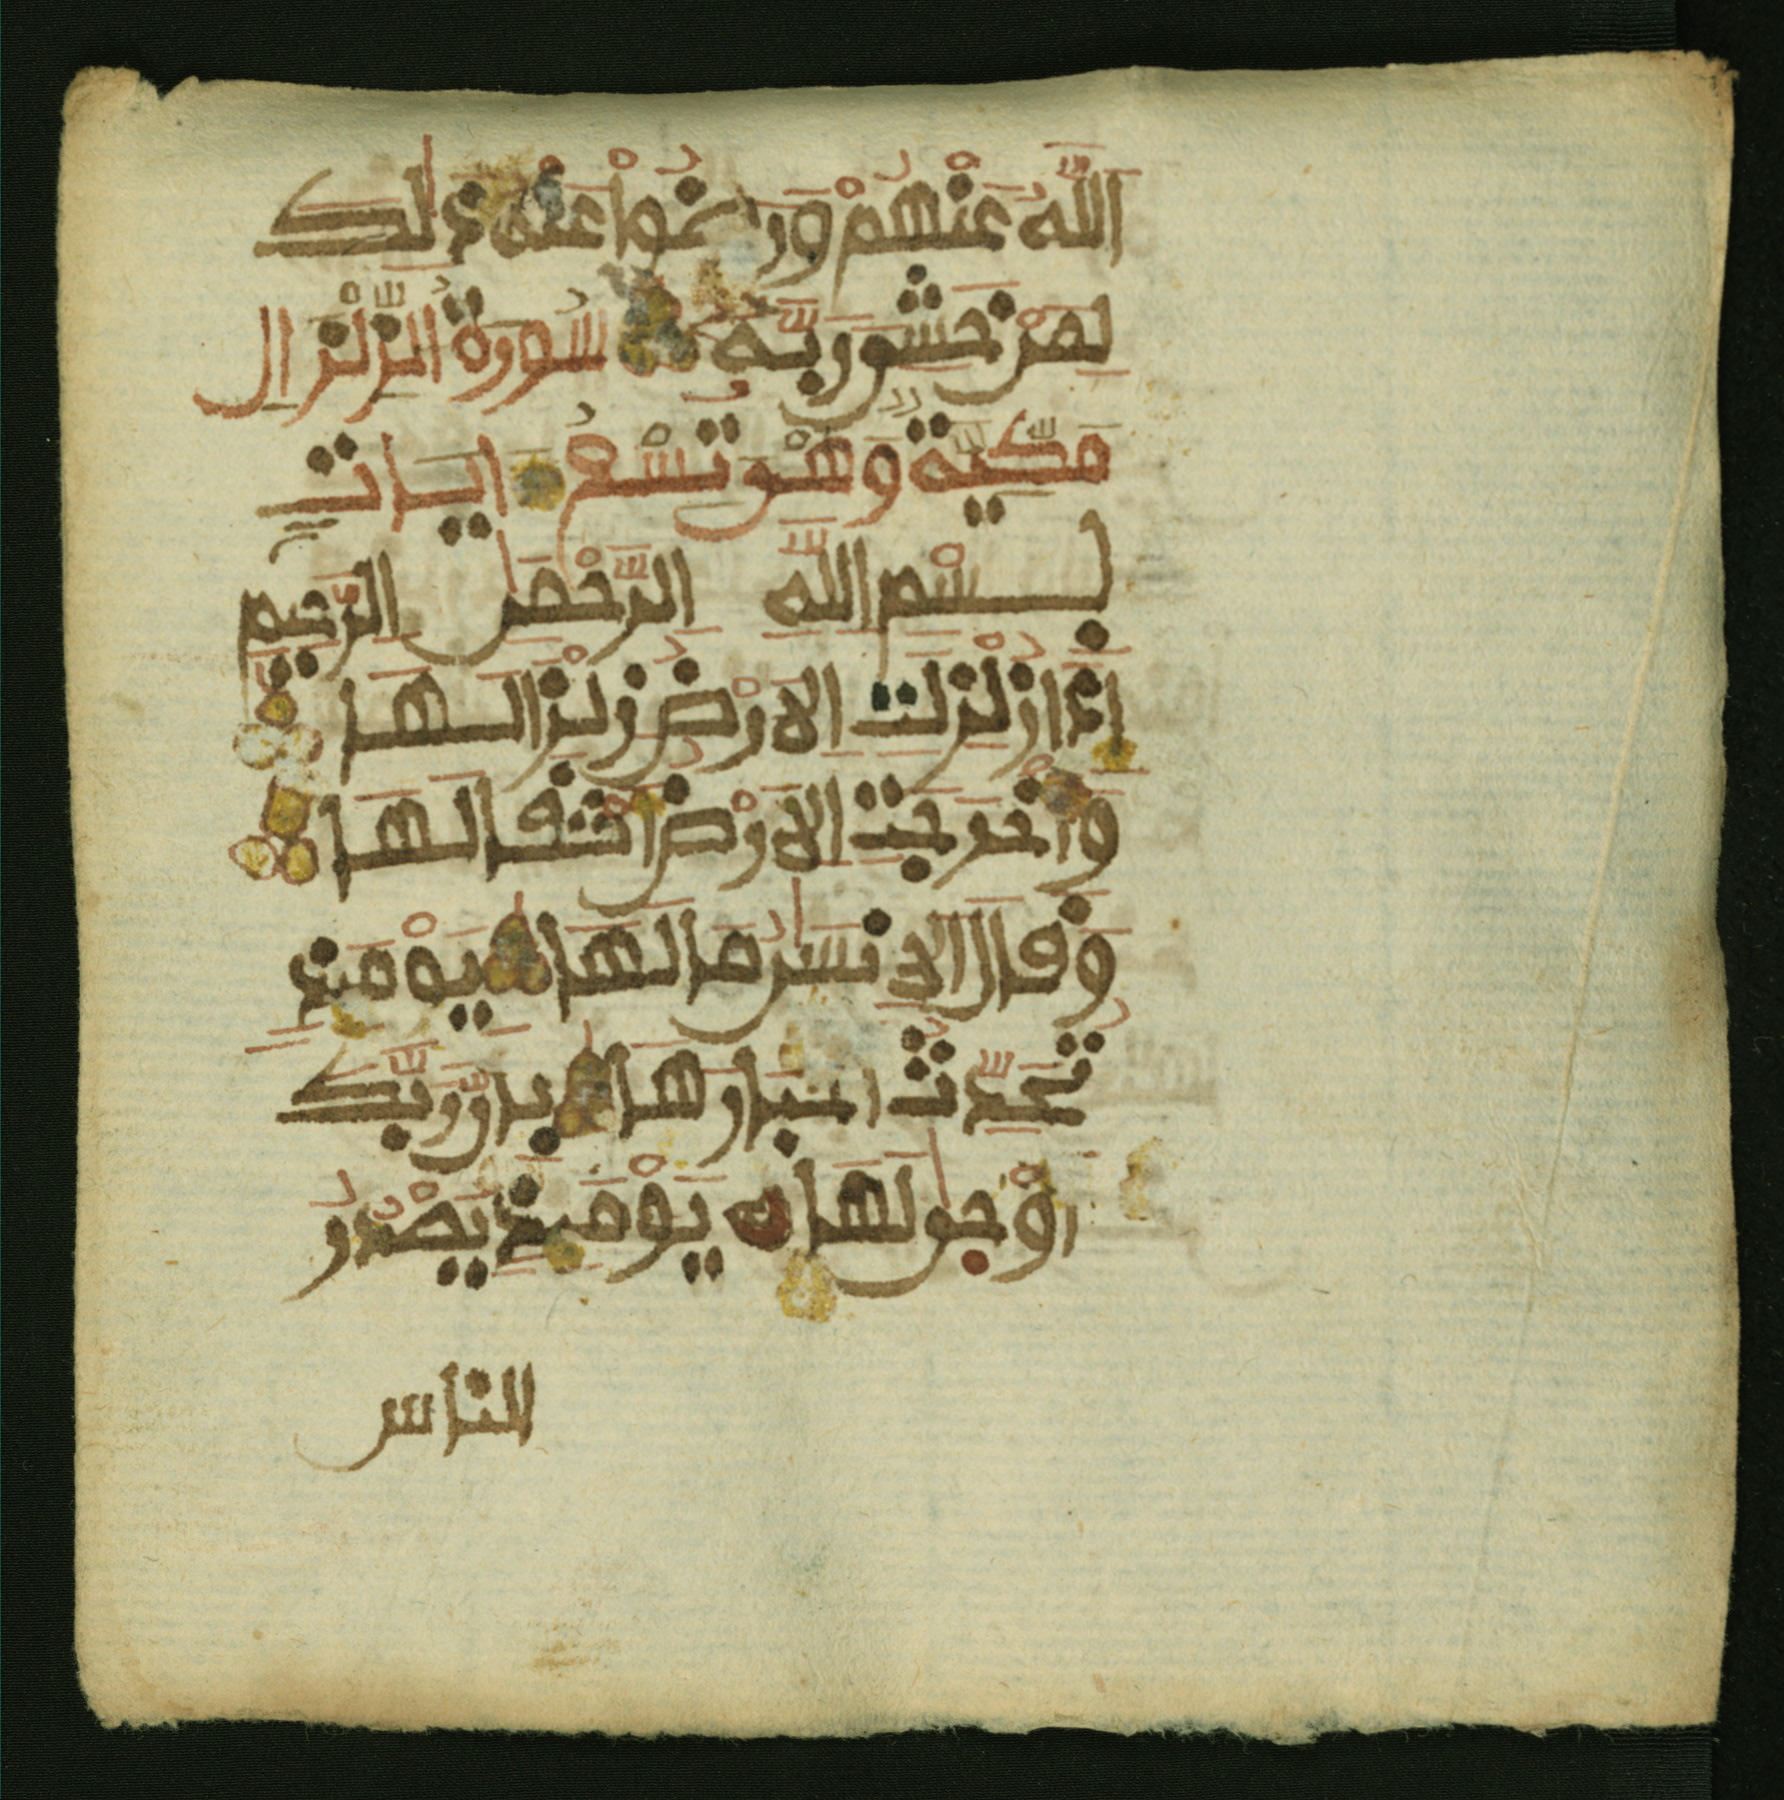 اللَّهُ عَنْهُمْ وَرَضُواْ عَنْهُ ذَٰلِكَ
لِمَنْ خَشِىَ رَبَّهُۥ سُورَةُ الزِّلْزَالِ
مَكِّيَّةٌ وَهْىَ تِسْعُ ءَايَاتٍ
بِسْمِ اللَّهِ الرَّحْمَٰنِ الرَّحِيمِ
إِذَا زُلْزِلَتِ الَارْضُ زِلْزَالَهَا
وَأَخْرَجَتِ الَارْضُ أَثْقَالَهَا
وَقَالَ الِانسَٰنُ مَا لَهَا يَوْمَئِذٍ
تُحَدِّثُ أَخْبَارَهَا بِأَنَّ رَبَّكَ
أَوْحَىٰ لَهَا يَوْمَئِذٍ يَصْدُرُ
الناس